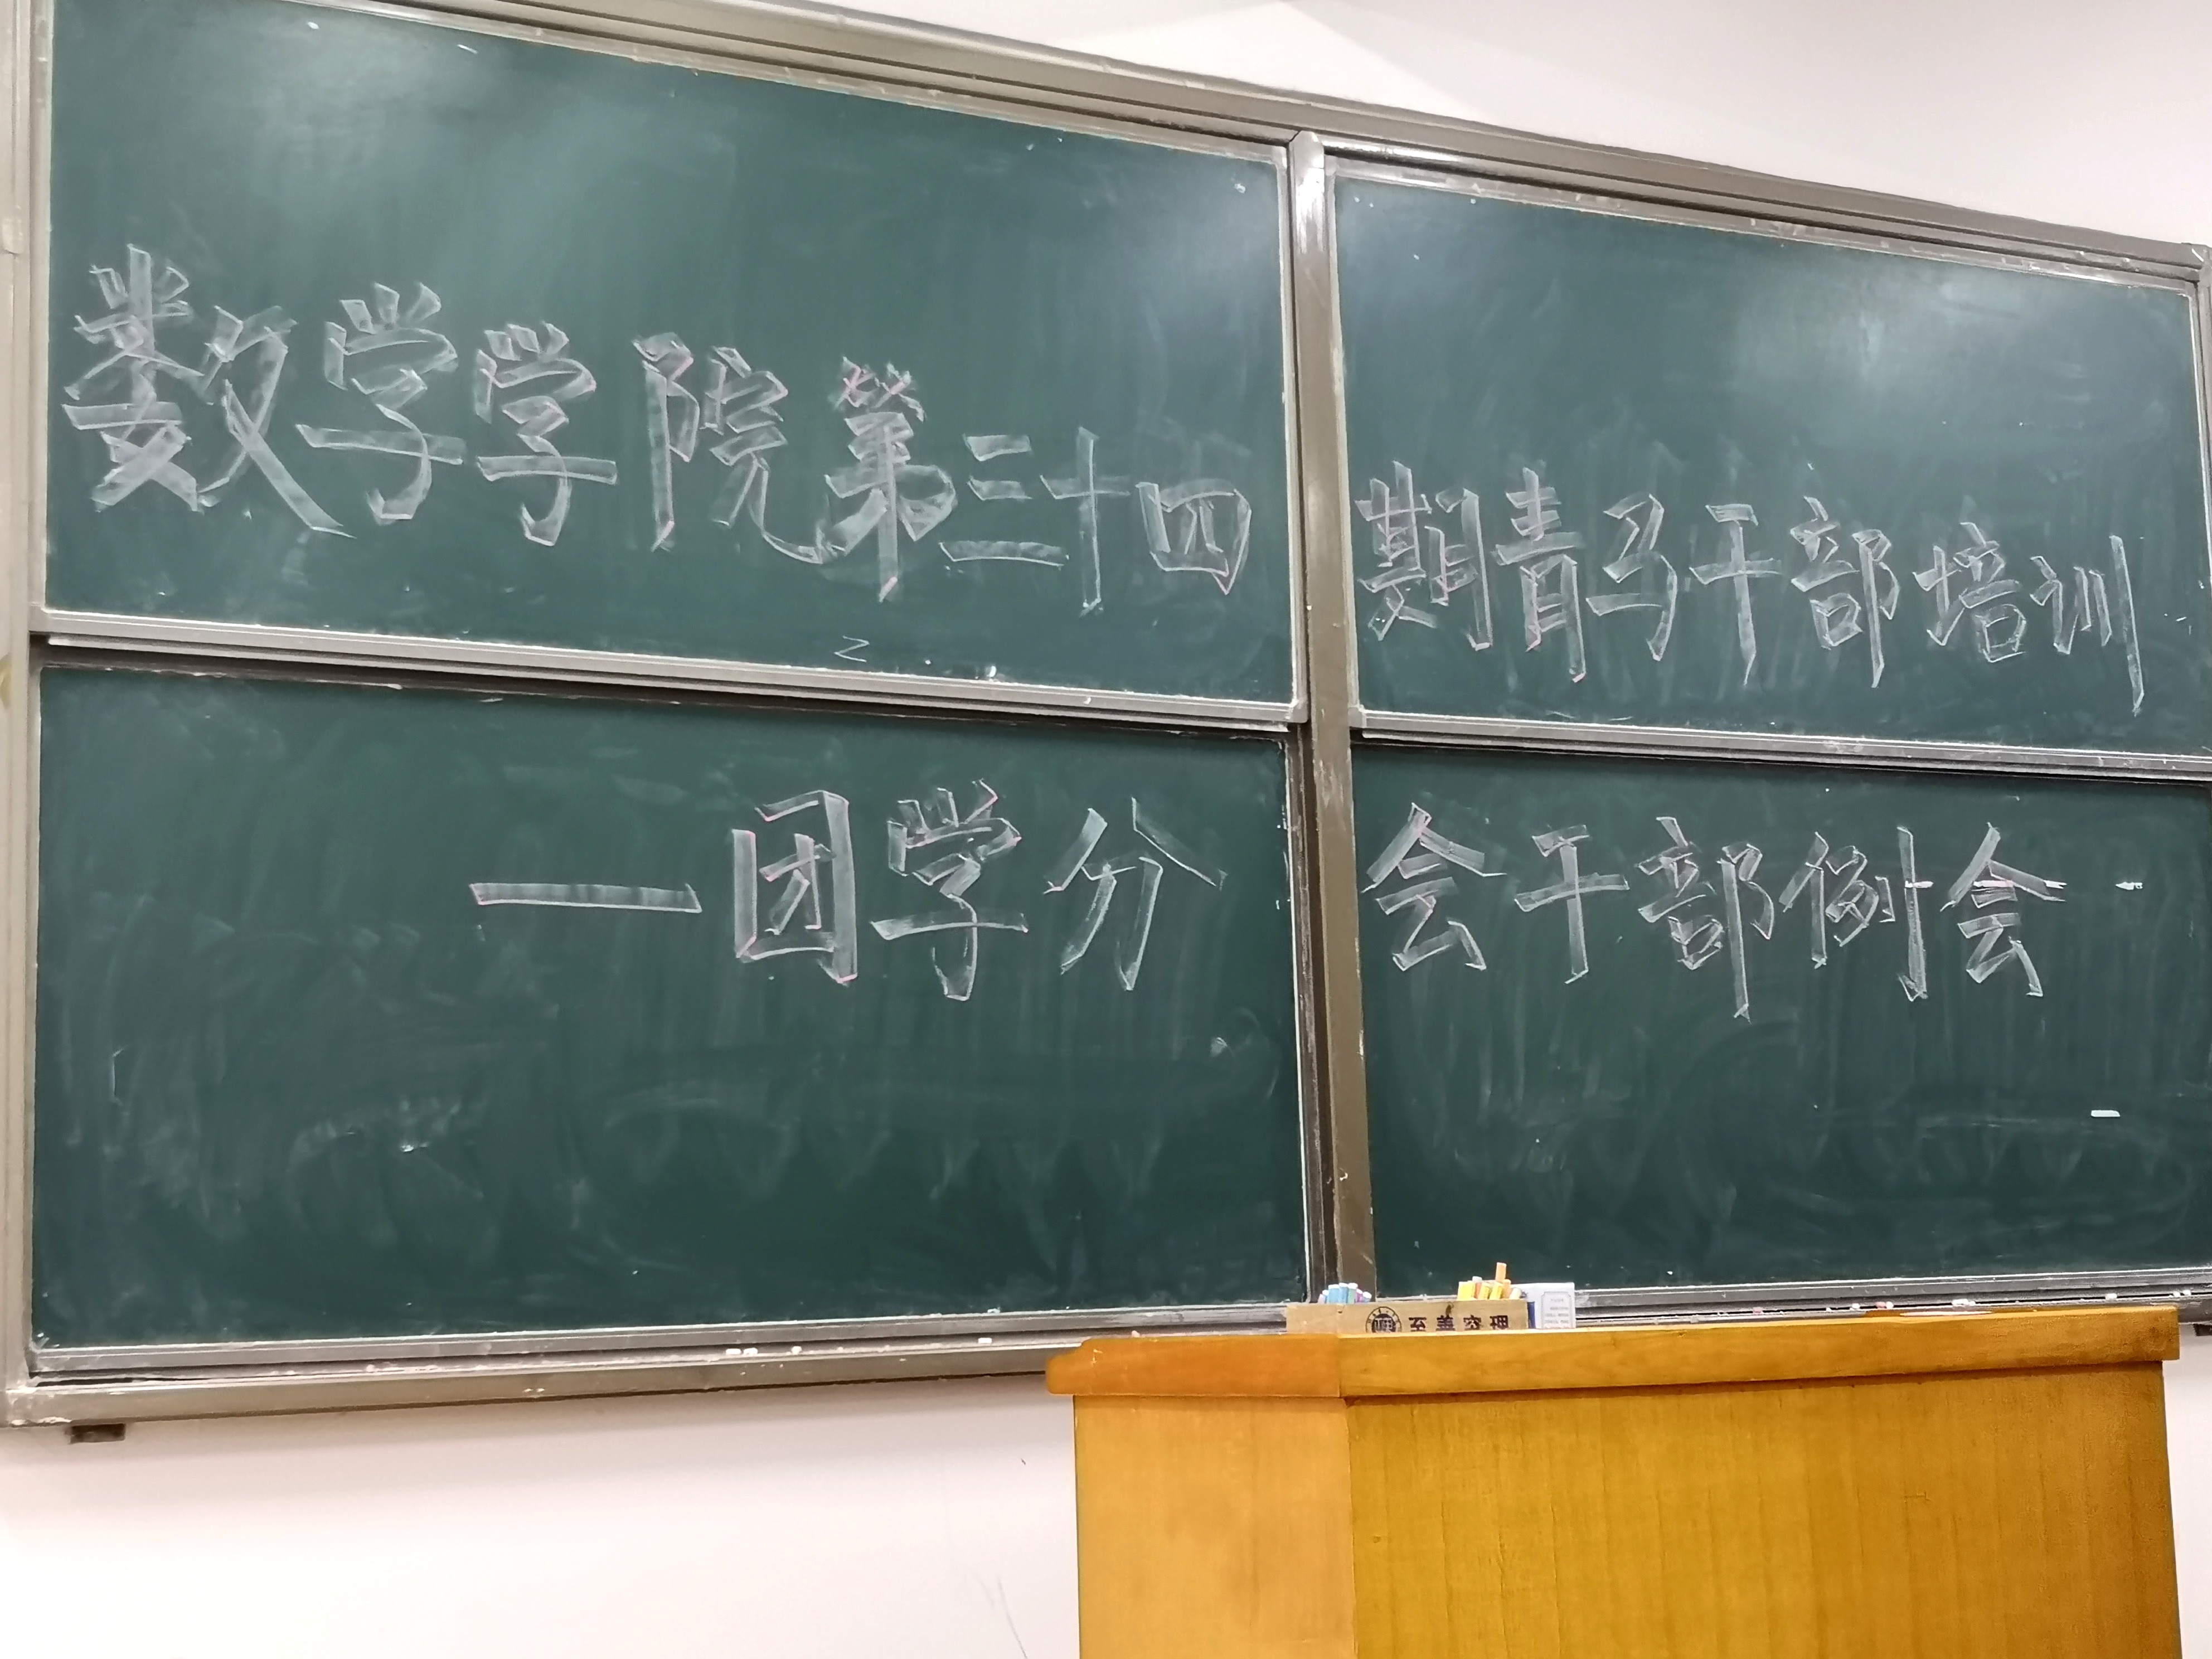 数学学院第三十四期青马干部培训
—团学分会干部例会
至善究理